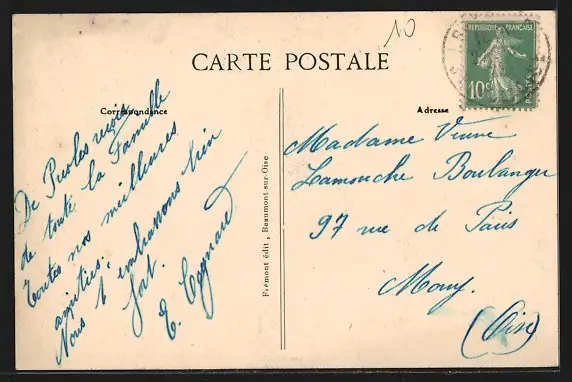 10
CARTE POSTALE
RÉPUBLIQUE FRANÇAISE
10c
POSTES
Correspondance
Adresse
De Presles reçois
de toute la Famille
toutes nos meilleures
amitiés.
Nous t'embrassons bien
fort.
E. Cagnard
Frémont édit, Beaumont sur Oise
Madame Veuve
Lamouche Boulanger
97 rue de Paris
Mouy.
(Oise)